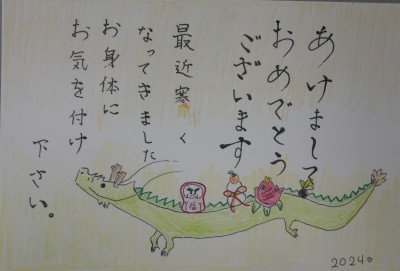 あけまして
おめでとう
ございます
最近寒く
なってきました
お身体に
お気を付け
下さい。
福
2024。